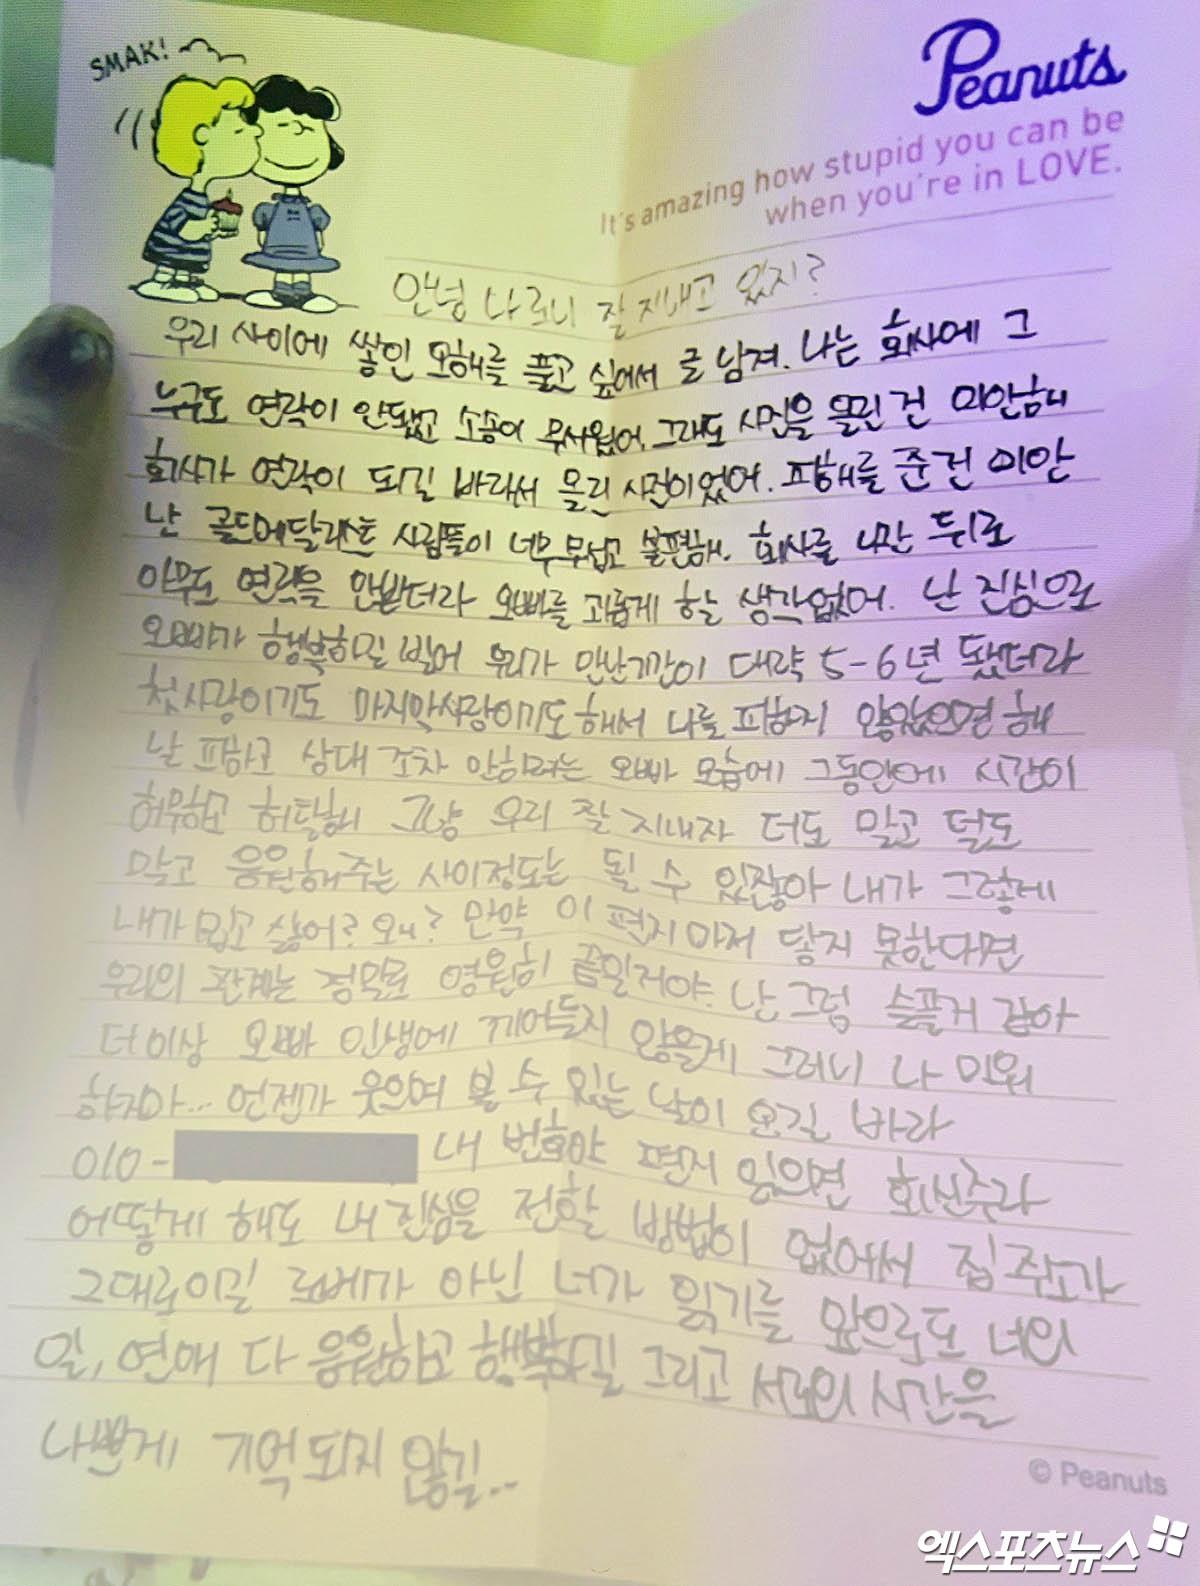 SMAK!
Peanuts
It's amazing how stupid you can be
when you're in LOVE.
안녕 나 론이 잘 지내고 있지?
우리 사이에 쌓인 오해를 풀고 싶어서 글 남겨. 나는 회사에 그
누구도 연락이 안됐고 소송이 무서웠어. 그래도 사진을 올린 건 미안해
회사가 연락이 되길 바라서 올린 사진이었어. 피해를 준 건 미안
난 골드메달리스트 사람들이 너무 무섭고 불편해. 회사를 나간 뒤로
아무도 연락을 안받더라 오빠를 괴롭게 할 생각없어. 난 진심으로
오빠가 행복하길 빌어 우리가 만난기간이 대략 5-6년 됐더라
첫사랑이기도 마지막사랑이기도해서 나를 피하지 않았으면 해
날 피하고 상대 조차 안하려는 오빠 모습에 그동안에 시간이
허무하고 허탈해 그냥 우리 잘 지내자 더도 말고 덜도
말고 응원해주는 사이정도는 될 수 있잖아 내가 그렇게
내가 밉고 싫어? 왜? 만약 이 편지마저 닿지 못한다면
우리의 관계는 정말로 영원히 끝일거야. 난 그럼 슬플거 같아
더이상 오빠 인생에 끼어들지 않을게 그러니 나 미워
하지마... 언젠가 웃으며 볼 수 있는 날이 오길 바라
010- 내 번호야 편지 읽으면 회신주라
어떻게 해도 내 진심을 전할 방법이 없어서 집 주소가
그대로이길 로베가 아닌 너가 읽기를 앞으로도 너의
일, 연애 다 응원하고 행복하길 그리고 서로의 시간을
나쁘게 기억되지 않길..
© Peanuts
엑스포츠뉴스